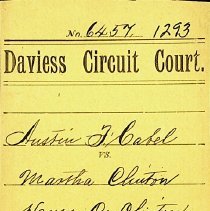 No. 6457 1293
Daviess Circuit Court.
Austin F Cabel
VS.
Martha Clinton